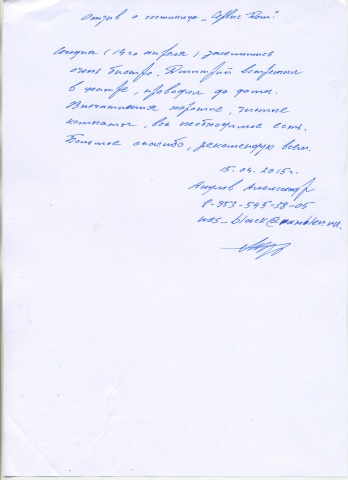 Отзыв о гостинице „Сервис Дом".
Сегодня (14го апреля) заселились
очень быстро. Дмитрий встретил
в центре, проводил до дома.
Впечатления хорошие, чистые
комнаты, все необходимое есть.
Большое спасибо, рекомендую всем.
15.04.2015г.
Александр
8-953-545-38-05